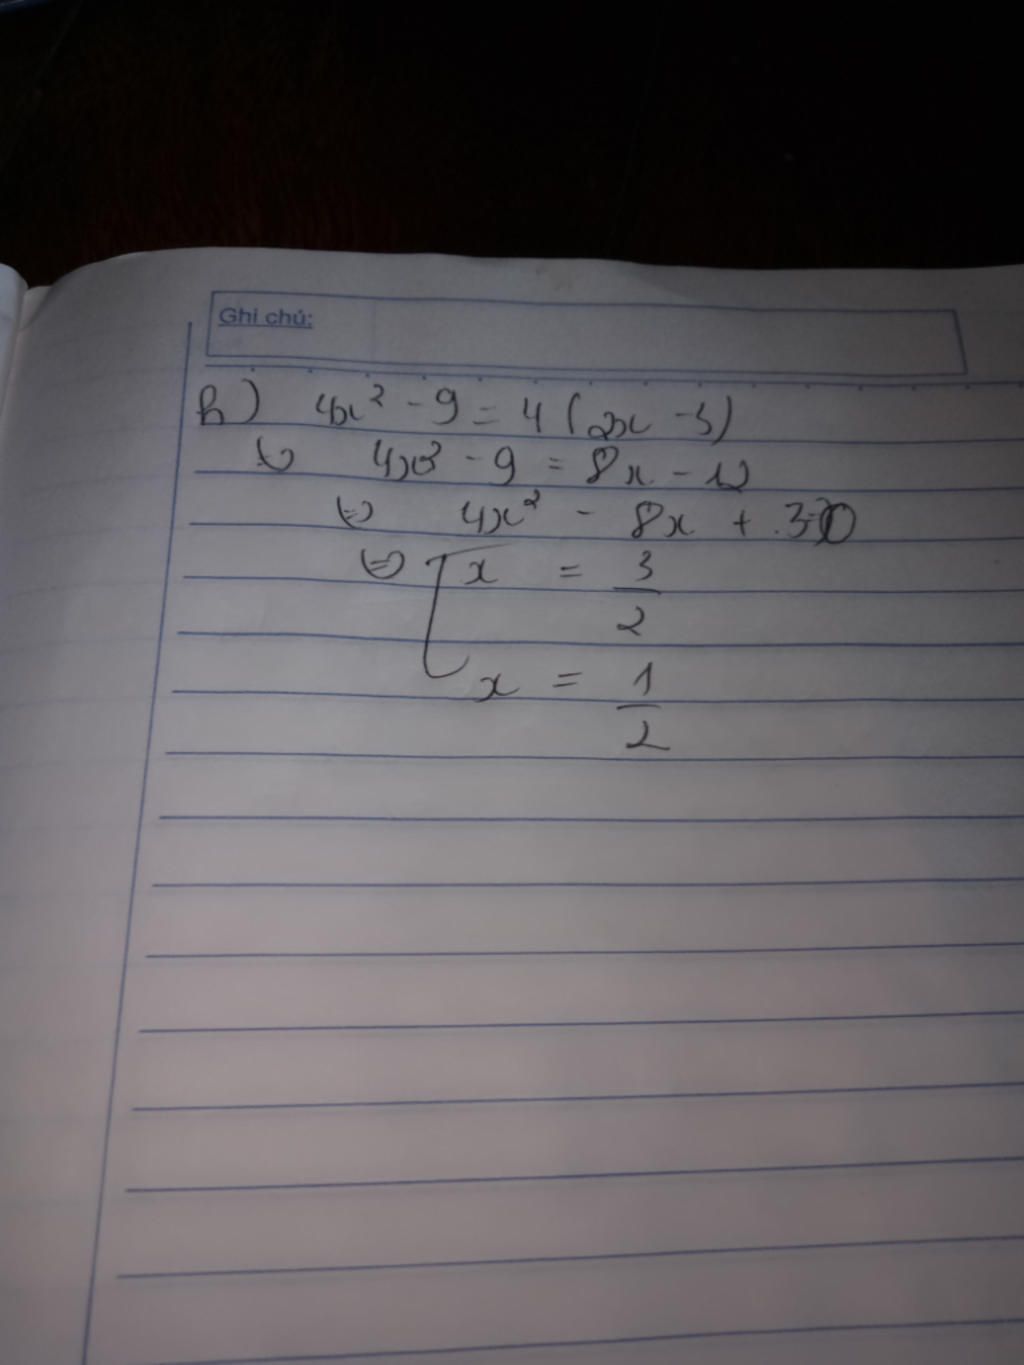 Ghi chú:
h) 4x² - 9 = 4 (2x - 3)
⇔ 4x² - 9 = 8x - 12
⇔ 4x² - 8x + 3 = 0
⇔ [ x = 3/2
x = 1/2